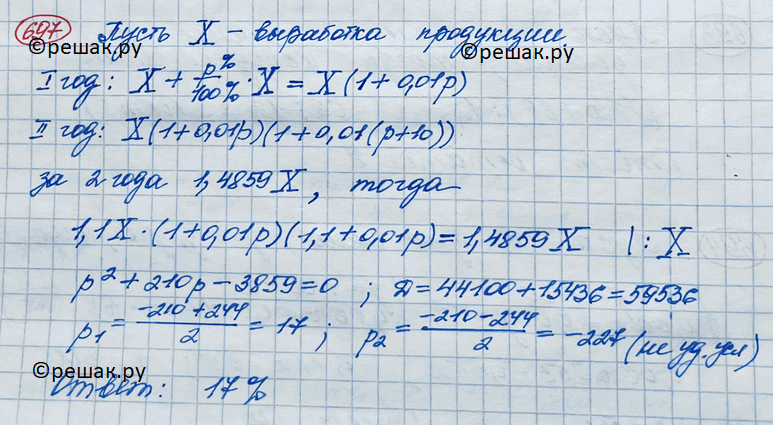 697 Пусть X – выработка продукции,
©решак.ру ©решак.ру
I год: X + p%/100% · X = X(1+0,01p)
II год: X(1+0,01p)(1+0,01(p+10))
за 2 года 1,4859X, тогда
1,1X·(1+0,01p)(1,1+0,01p)=1,4859X |: X
p²+210p−3859=0 ; Д=44100+15436=59536
p₁ = (−210+244)/2 = 17 ; p₂ = (−210−244)/2 = −227 (не уд. усл)
©решак.ру
Ответ: 17%
©решак.ру